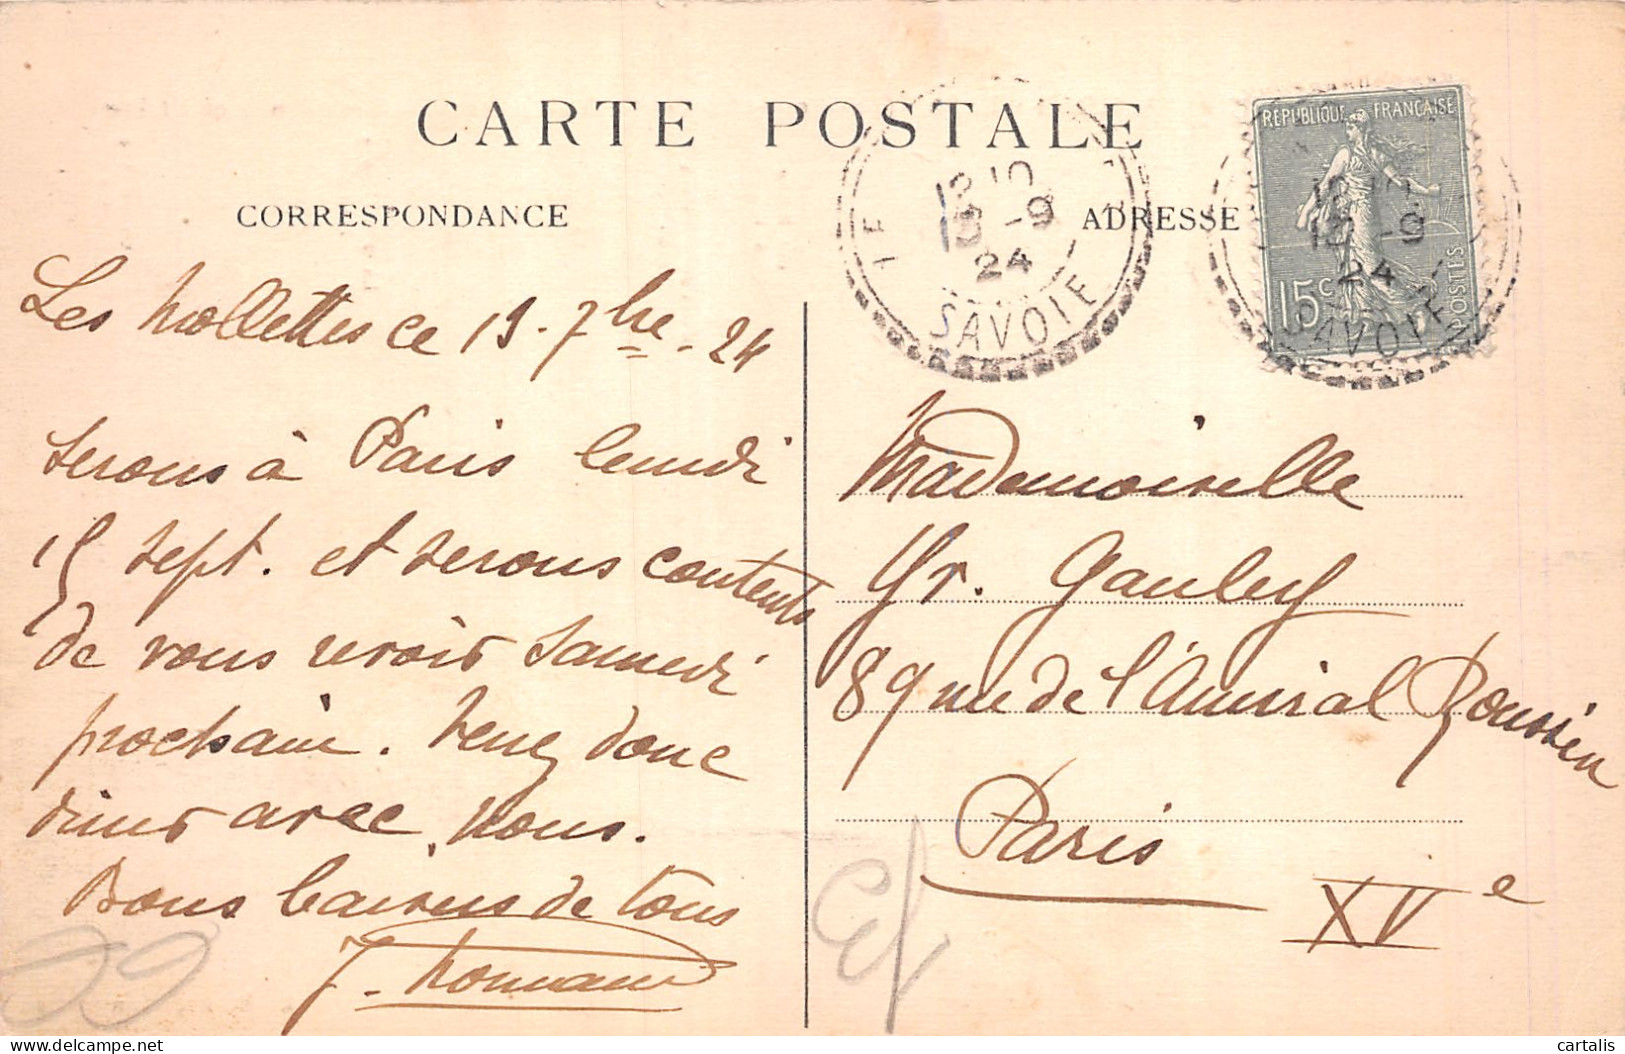 CARTE POSTALE
CORRESPONDANCE
ADRESSE
Les Mollettes ce 13. 7bre. 24
serons à Paris lundi
15 sept. et serons contents
de vous revoir samedi
prochain. Venez donc
diner avec nous.
Bons baisers de tous
J.
Mademoiselle
Yr. Gauley
89 rue de l'Amiral Roussin
Paris
XVe
RÉPUBLIQUE FRANÇAISE
15c
POSTES
-9
24
SAVOIE
-9
24
SAVOIE
delcampe.net
cartalis